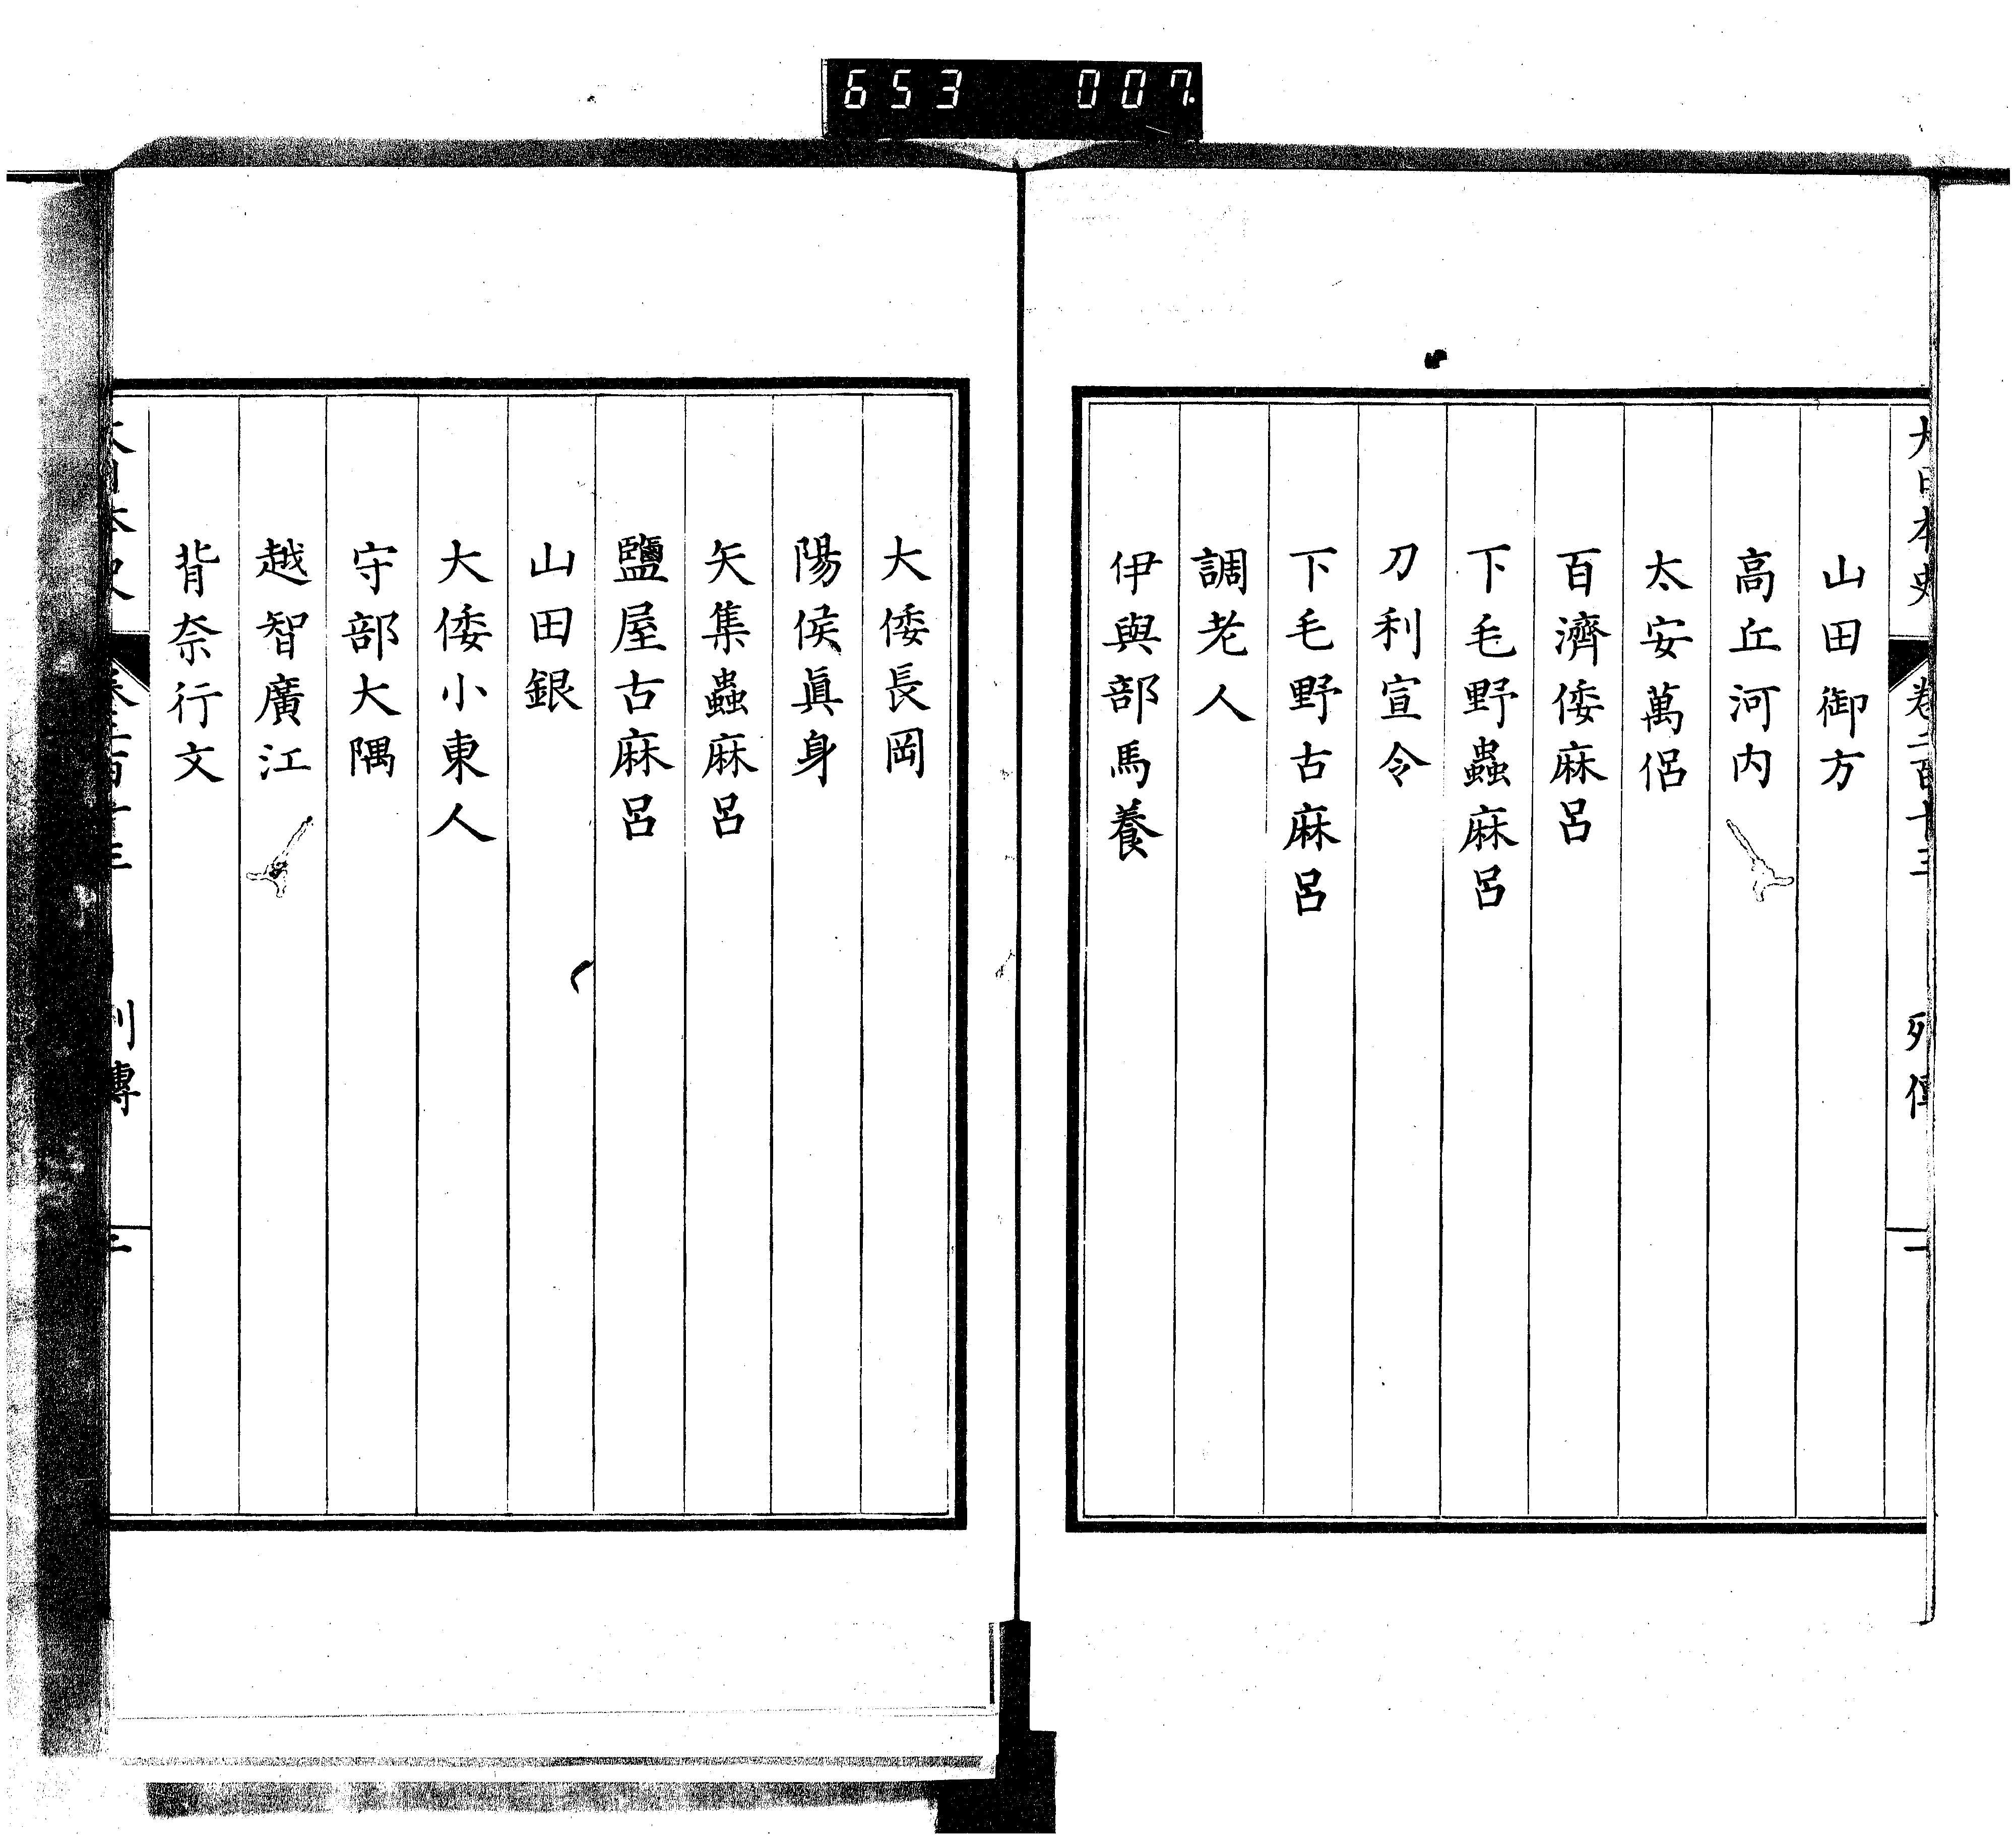 653 007
大日本史 卷二百十三 列傳 一
山田御方
高丘河内
太安萬侶
百濟倭麻呂
下毛野蟲麻呂
刀利宣令
下毛野古麻呂
調老人
伊與部馬養
大倭長岡
陽侯眞身
矢集蟲麻呂
鹽屋古麻呂
山田銀
大倭小東人
守部大隅
越智廣江
背奈行文
大日本史 卷二百十三 列傳 二